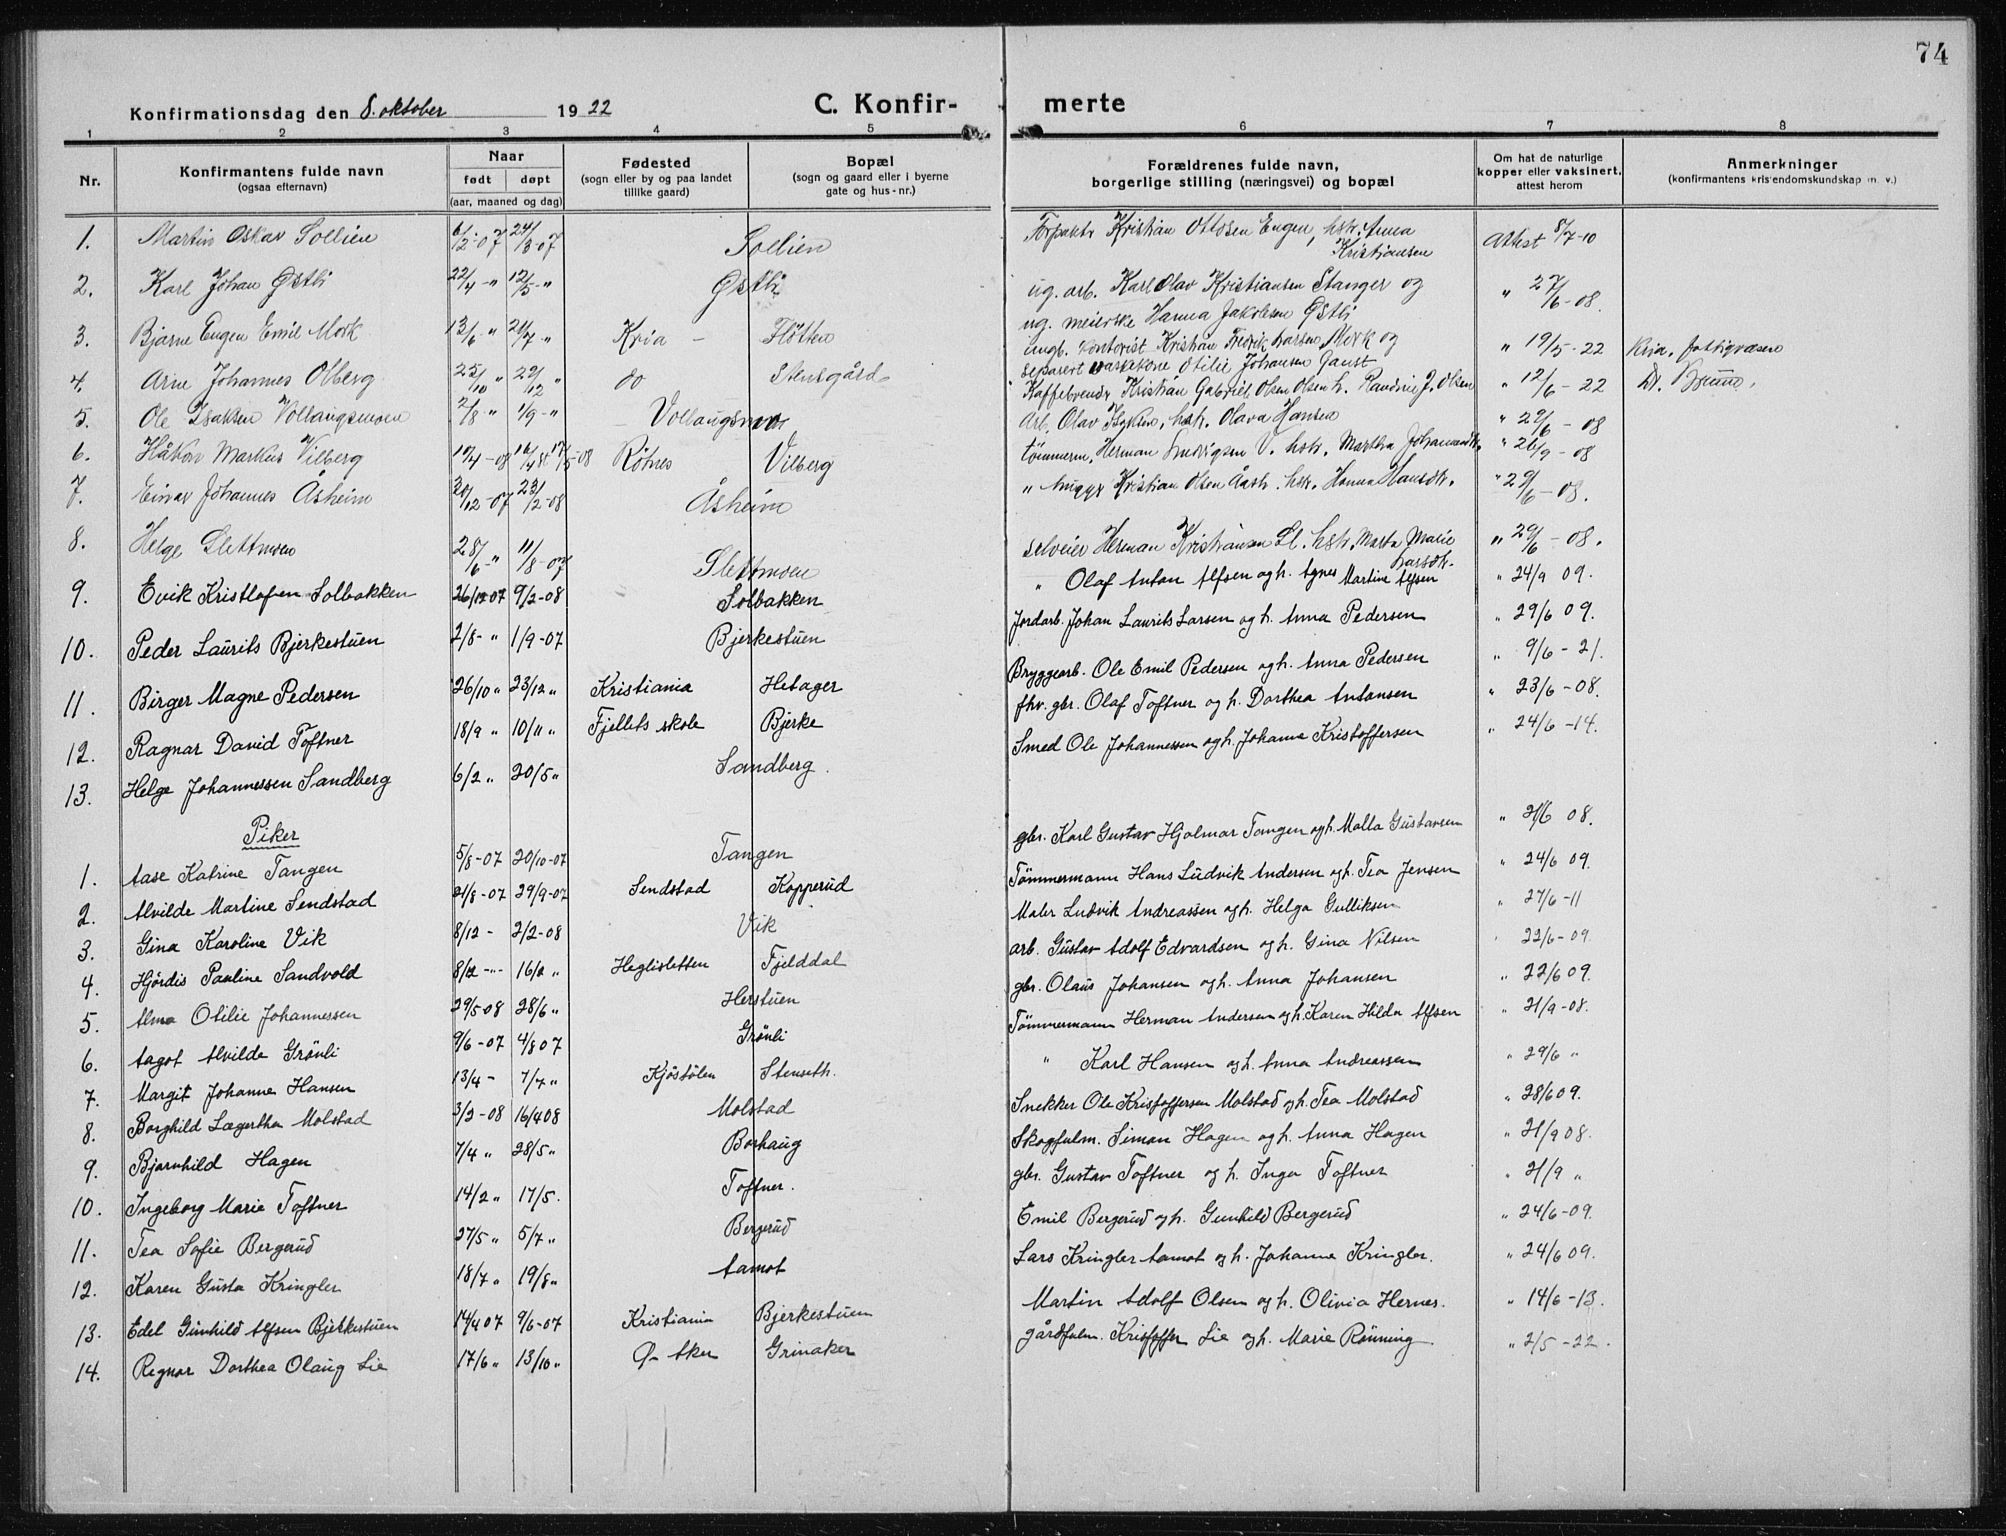 74
Konfirmationsdag den 8. oktober 1922 C. Konfirmerte
1 2 3 4 5 6 7 8
Nr. Konfirmantens fulde navn (ogsaa efternavn) Naar født døpt (aar, maaned og dag) Fødested (sogn eller by og paa landet tillike gaard) Bopæl (sogn og gaard eller i byerne gate og hus-nr.) Forældrenes fulde navn, borgerlige stilling (næringsvei) og bopæl Om hat de naturlige kopper eller vaksinert, attest herom Anmerkninger (konfirmantens kristendomskundskap m. v.)
1. Martin Oskar Sollien 6/2-07 24/3-07 Sollien Forpakter Kristian Ottosen Engen, hstr. Anna Kristiansen Attest 8/7-10
2. Karl Johan Østli 22/4 -" 12/5 -" Østli ug. arb. Karl Olav Kristiansen Stanger og ug. meierske Hanna Jakobsen Østli " 27/6-08.
3. Bjarne Eugen Emil Mork 13/6 " 21/7 " Kria - Fløtten ungk. kontorist Kristian Fredrik Larsen Mork og separert Otilie Johansen Gaust " 19/5-22 Kria. fattigvæsen
4. Arne Johannes Olberg 25/10 " 29/12 " do Stensgård Kaffebrender Kristian Gabriel Olsen Olsen h. Randine J. Olsen " 12/6-22 Dr.
5. Ole Isaksen Vollaugsmoen 2/8 -" 1/9 -" Vollaugsmoen Arb. Olav hstr. Olava Hansen " 29/6-08
6. Håkon Markus Vilberg 10/4-08 16/4 st 17/5-08 Rötnes Vilberg tömmerm. Herman Ludvigsen V. hstr. Martha Johannesdtr. " 26/9-08
7. Einar Johannes Åsheim 20/12-07 23/2-08 Åsheim " bygger Kristian Olsen Åsh. hstr. Hanna Hansdtr. " 29/6-08.
8. Helge Slettmoen 28/6-" 11/8-07 Slettmoen selveier Herman Kristiansen Sl. hstr. Marta Marie Larsdtr. " 29/6-08.
9. Erik Kristlofen Solbakken 26/12-07 9/2-08 Solbakken " Olaf Anton Alfsen og h. Agnes Martine Alfsen " 24/9 09.
10. Peder Laurits Bjerkestuen 2/8- " 1/9-07 Bjerkestuen Jordarb. Johan Laurits Larsen og h. Anna Pedersen " 29/6 09.
11. Birger Magne Pedersen 26/10 " 23/12 " Kristiania Hetager Bryggearb. Ole Emil Pedersen og h. Anna Pedersen " 9/6-21.
12. Ragnar David Toftner 18/9 " 10/11 " Fjellets skole Bjerke fhv. gbr. Olaf Toftner og h. Dorthea Antonsen " 23/6-08.
13. Helge Johannessen Sandberg 6/2 " 20/5 " Sandberg. Smed Ole Johannessen og h. Johanne Kristoffersen " 24/6-14.
Piker
1. Aase Katrine Tangen 5/8-07 20/10-07 Tangen gbr. Karl Gustav Hjalmar Tangen og h. Malla Gustavsen " 21/6 08.
2. Alvilde Martine Sendstad 21/8-07 29/9-07 Sendstad Kopperud Tömmermann Hans Ludvik Andersen og h. Tea Jensen " 24/6 09.
3. Gina Karoline Vik 8/12 - 2/2-08 Vik Maler Ludvik Andreassen og h. Helga Gulliksen " 27/6-11
4. Hjördis Pauline Sandvold 8/12 -"- 16/2 " Heglisletten Fjelddal arb. Gustav Adolf Edvardsen og h. Gina Nilsen " 22/6-09.
5. Alma Otilie Johannessen 29/5 08 28/6 " Herstuen gbr. Olaus Johansen og h. Anna Johansen " 22/6 09.
6. Aagot Alvilde Grönli 9/6-07 4/8 07 Grönli Tömmermann Herman Andersen og h. Karen Hilda Alfsen " 21/9-08.
7. Margit Johanne Hansen 13/4 - 7/7 " Kjöstölen Stenseth. " Karl Hansen og h. Anna Andreassen " 29/6 "
8. Borghild Lægertha Molstad 3/2-08 16/4 08 Molstad Snekker Ole Kristoffersen Molstad og h. Tea Molstad " 28/6 09.
9. Bjarnhild Hagen 7/4 " 28/5 " Borhaug Skogfulm. Simon Hagen og h. Anna Hagen " 21/9 08.
10. Ingeborg Marie Toftner 14/2 " 17/5. Toftner. gbr. Gustav Toftner og h. Inga Toftner " 21/9 "
11. Tea Sofie Bergerud 27/5 " 5/7 " Bergerud Emil Bergerud og h. Gunhild Bergerud " 24/6-09.
12. Karen Gusta Kringler 18/7 " 19/8 " Aamot Lars Kringler Aamot og h. Johanne Kringler. " 24/6 09.
13. Edel Gunhild Alfsen Bjerkestuen 14/4 07 9/6-07 Kristiania Bjerkestuen Martin Adolf Olsen og h. Olivia Hernes. " 14/6-13.
14. Regnor Dorthea Olaug Lie 17/6 " 13/10 " Ø- Aker Grinaker gårdfulm. Kristoffer Lie og h. Marie Rönning " 2/5-22.